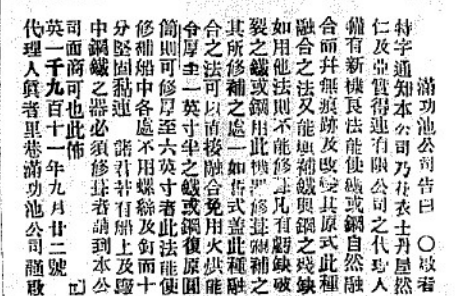 滿功池公司告白　〇啟者
特字通知本公司乃花衣士丹屋然
仁及亞賞得連有限公司之代理人
備有新機良法能使鐵或鋼自然融
合而并無痕跡及改變其原式此種
融合之法又能興補鐵與鋼之殘缺
如用他法則不能修葺凡有虧缺破
裂之鐵或鋼用此機器修葺補之
其所修補之處一如舊式蓋此種融
合之法可以直接融合免用火烘能
令厚至一英寸半之鐵或鋼復原圓
筒則可修厚至六英寸者此法能使
修補船中各處不用螺絲及釘而十
分堅固黏連　諸君若有船上及廠
中鋼鐵之器必須修葺者請到本公
司面商可也此佈
英一千九百十一年九月廿二號
代理人敻者里巷滿功池公司謹啟